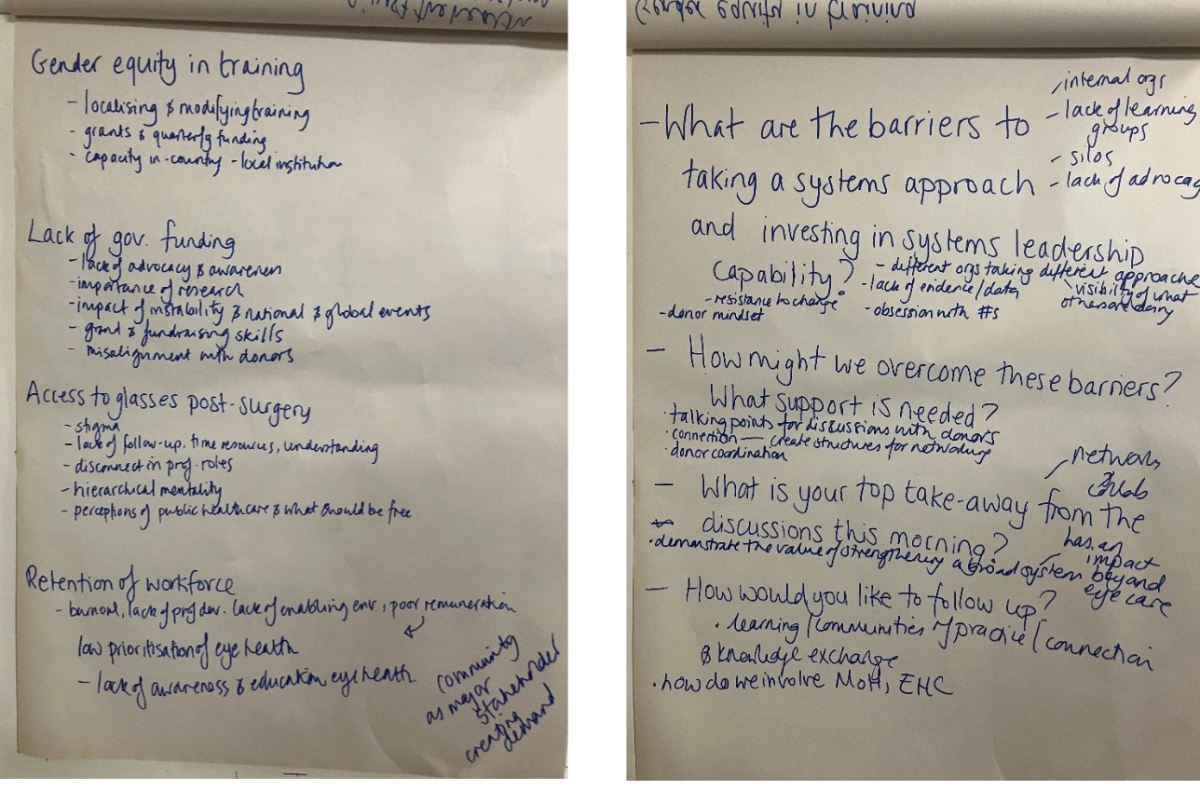 Gender equity in training
- localising & modifying training
- grants & quarterly funding
- capacity in-country - local institution
Lack of gov. funding
- lack of advocacy & awareness
- importance of research
- impact of instability & national & global events
- grant & fundraising skills
- misalignment with donors
Access to glasses post-surgery
- stigma
- lack of follow-up, time resources, understanding
- disconnect in prof. roles
- hierarchical mentality
- perceptions of public healthcare & what should be free
Retention of workforce
- burnout, lack of prof dev. lack of enabling env, poor remuneration
low prioritisation of eye health
- lack of awareness & education eye health
community
as major
stakeholder
creating
demand
- What are the barriers to
taking a systems approach
and investing in systems leadership
capability?
- internal orgs
- lack of learning
groups
- silos
- lack of advocacy
- different orgs taking different approache
visibility of what
others are doing
- lack of evidence/data
- obsession with #s
- resistance to change
- donor mindset
- How might we overcome these barriers?
What support is needed?
· talking points for discussions with donors
· connection — create structures for networking
· donor coordination
- What is your top take-away from the
discussions this morning?
network
& collab
· demonstrate the value of strengthening a broad system
has an
impact
beyond
eye care
- How would you like to follow up?
· learning / communities of practice / connection
& knowledge exchange
· how do we involve MoH, EHC